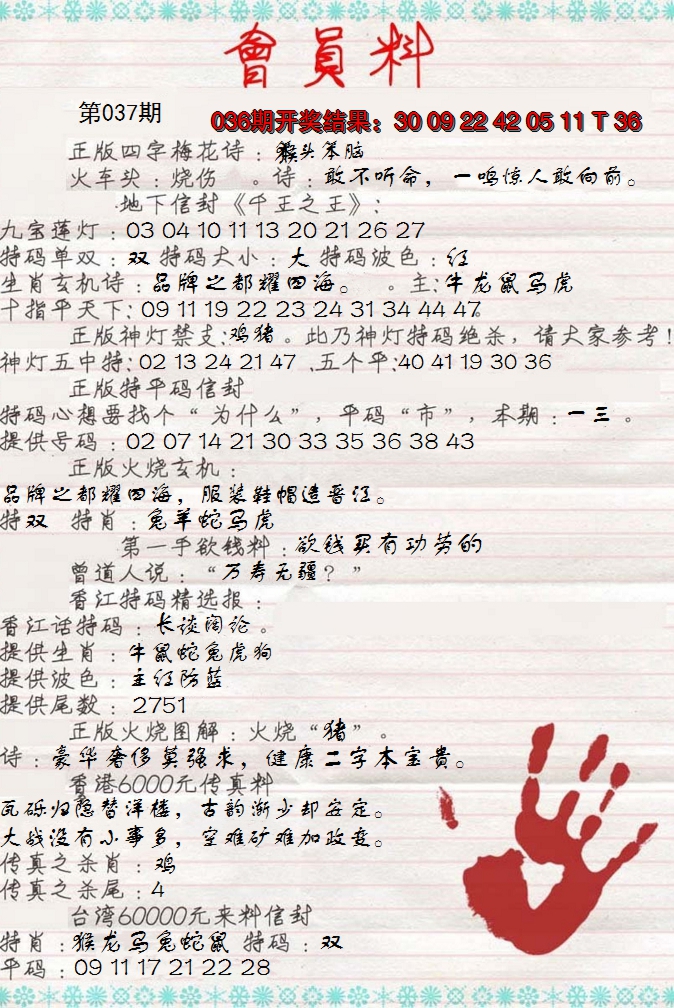 會員料
第037期
036期开奖结果：30 09 22 42 05 11 T 36
正版四字梅花诗：猴头笨脑
火车头：烧伤 。诗：敢不听命，一鸣惊人敢向前。
地下信封《千王之王》：
九宝莲灯：03 04 10 11 13 20 21 26 27
特码单双：双 特码大小：大 特码波色：红
生肖玄机诗：品牌之都耀四海。 。主:牛龙鼠马虎
十指平天下:09 11 19 22 23 24 31 34 44 47.
正版神灯禁支:鸡猪。此乃神灯特码绝杀，请大家参考！
神灯五中特:02 13 24 21 47 、五个平:40 41 19 30 36
正版特平码信封
特码心想要找个“为什么”，平码“市”，本期：一三 。
提供号码：02 07 14 21 30 33 35 36 38 43
正版火烧玄机：
品牌之都耀四海，服装鞋帽造晋江。
特双 特肖：兔羊蛇马虎
第一手欲钱料：欲钱买有功劳的
曾道人说：“万寿无疆？”
香江特码精选报：
香江话特码：长谈阔论。
提供生肖：牛鼠蛇兔虎狗
提供波色：主红防蓝
提供尾数：2751
正版火烧图解：火烧“猪”。
诗：豪华奢侈莫强求，健康二字本宝贵。
香港6000元传真料
瓦砾归隐替洋楼，古韵渐少却安定。
大战没有小事多，空难矿难加政变。
传真之杀肖：鸡
传真之杀尾：4
台湾60000元来料信封
特肖:猴龙马兔蛇鼠 特码：双
平码：09 11 17 21 22 28